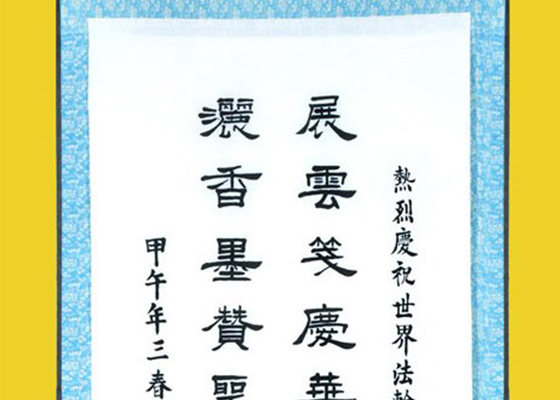 熱烈慶祝世界法輪
展雲笺慶華
灑香墨贊聖
甲午年三春